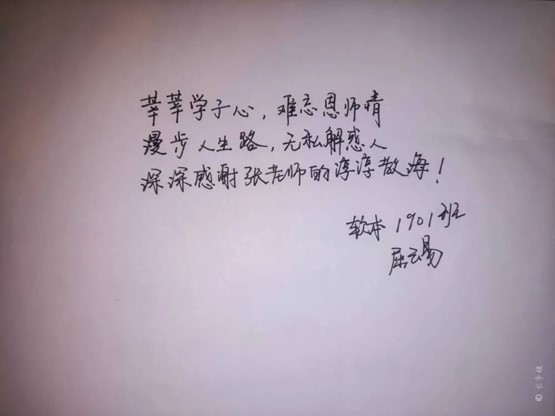 莘莘学子心，难忘恩师情
漫步人生路，无私解惑人
深深感谢张老师的谆谆教诲！
软本1901班
屈云易